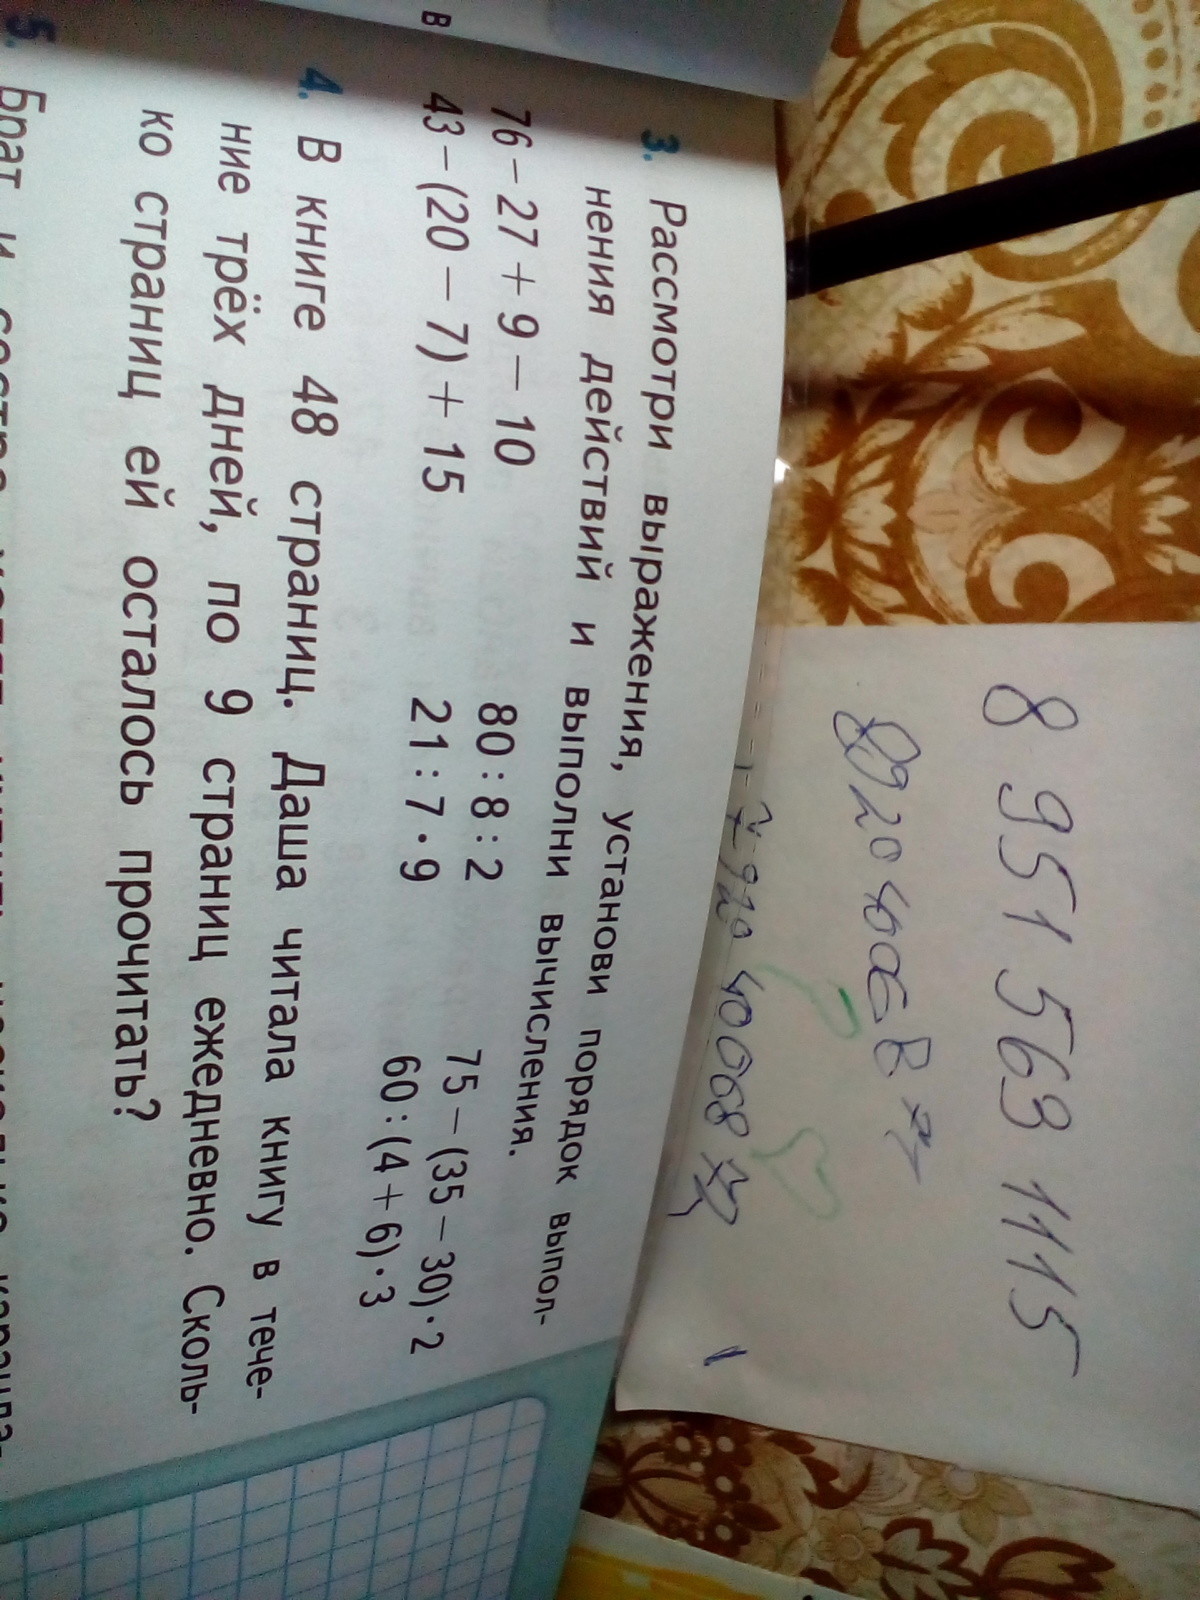 8 951 563 1115
3. Рассмотри выражения, установи порядок выпол-
нения действий и выполни вычисления.
76 – 27 + 9 – 10 80 : 8 : 2 75 – (35 – 30) · 2
43 – (20 – 7) + 15 21 : 7 · 9 60 : (4 + 6) · 3
4. В книге 48 страниц. Даша читала книгу в тече-
ние трёх дней, по 9 страниц ежедневно. Сколь-
ко страниц ей осталось прочитать?
5. Брат и сестра
в